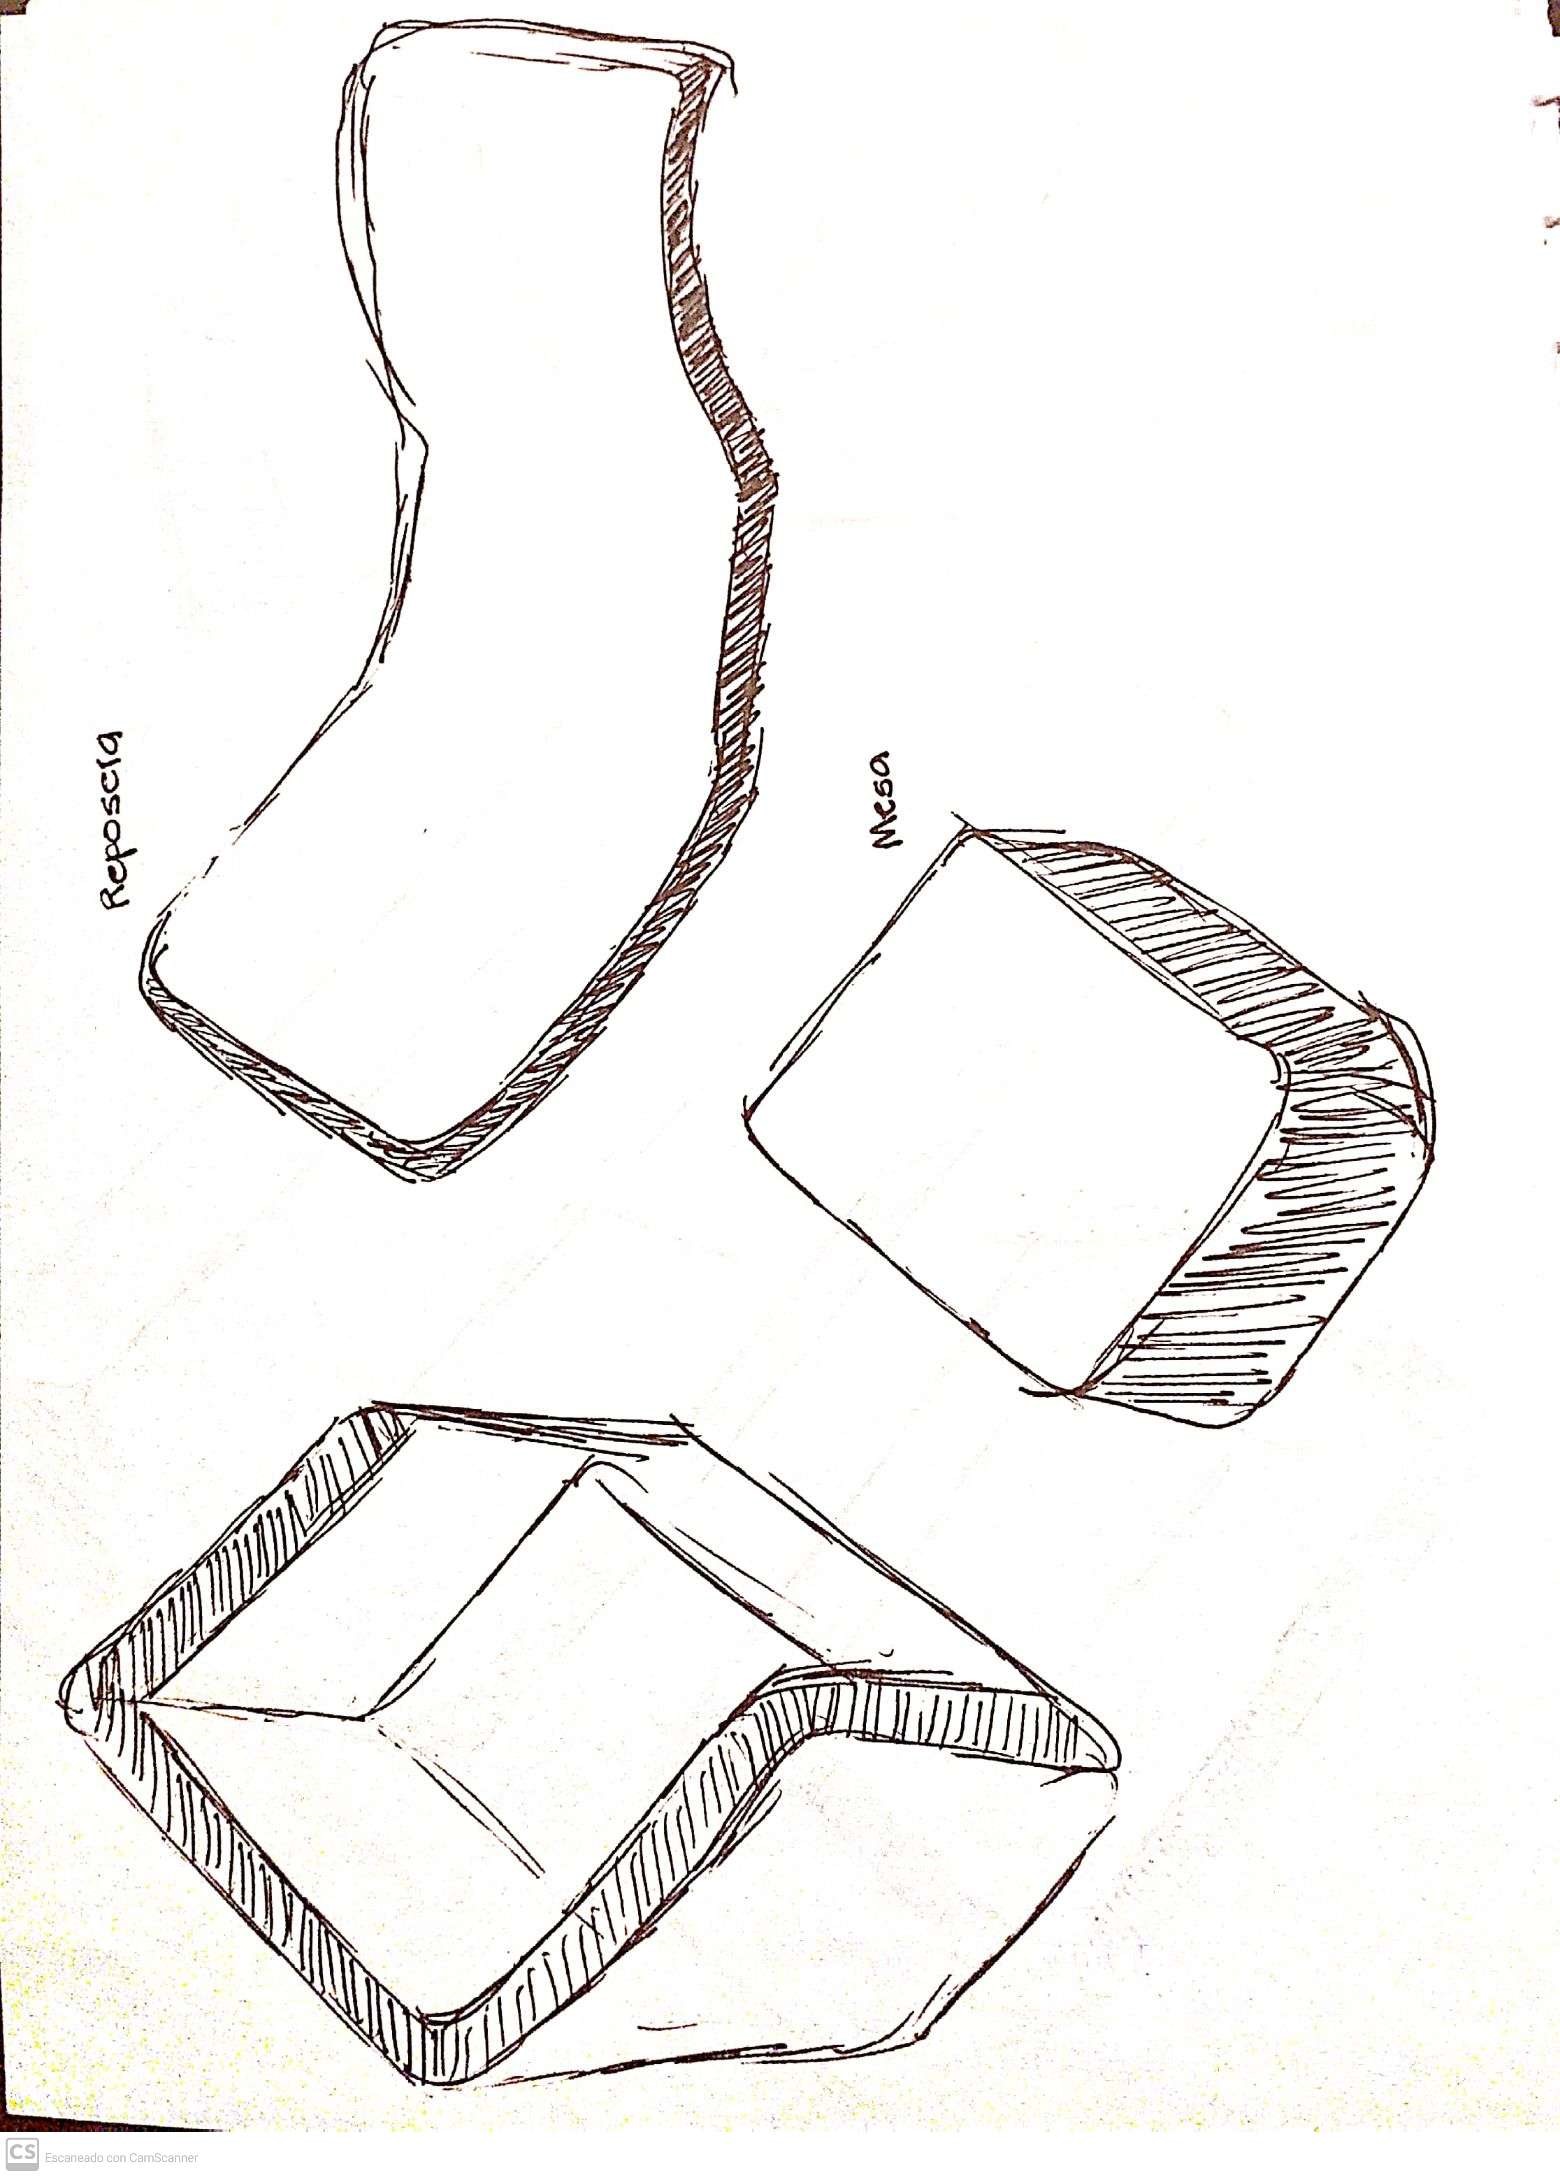 CS
Escaneado con CamScanner
Reposera
Mesa